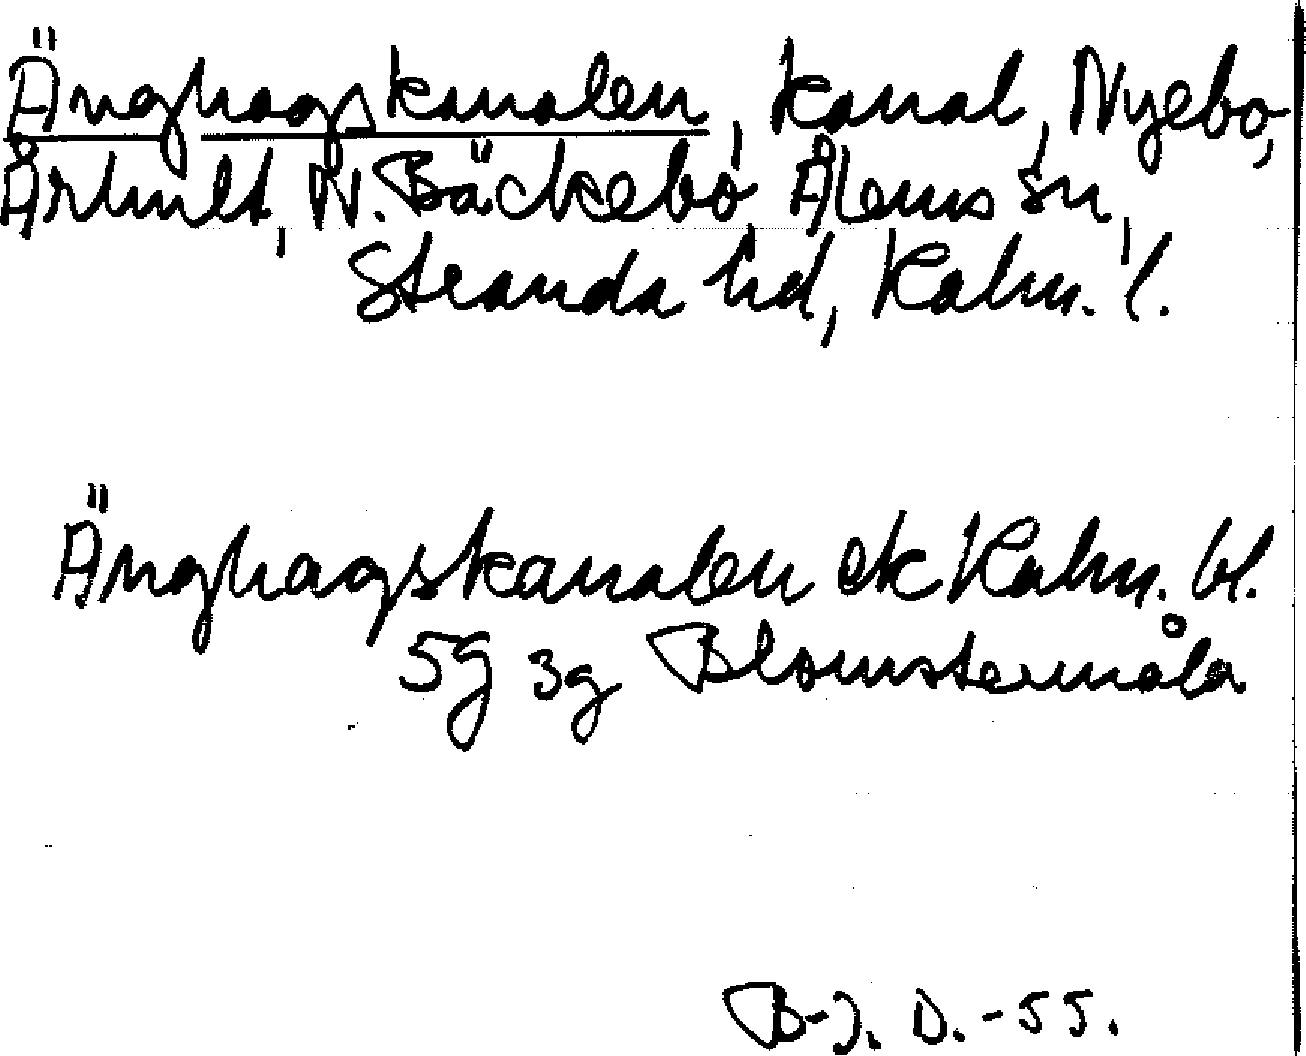 Änghagskanalen, kanal, Nyebo,
Århult, N. Bäckebo, Ålems sn,
Stranda hd, Kalm. l.
Änghagskanalen ek Kalm. bl.
5g 3g Blomstermåla
B-J. D. -55.